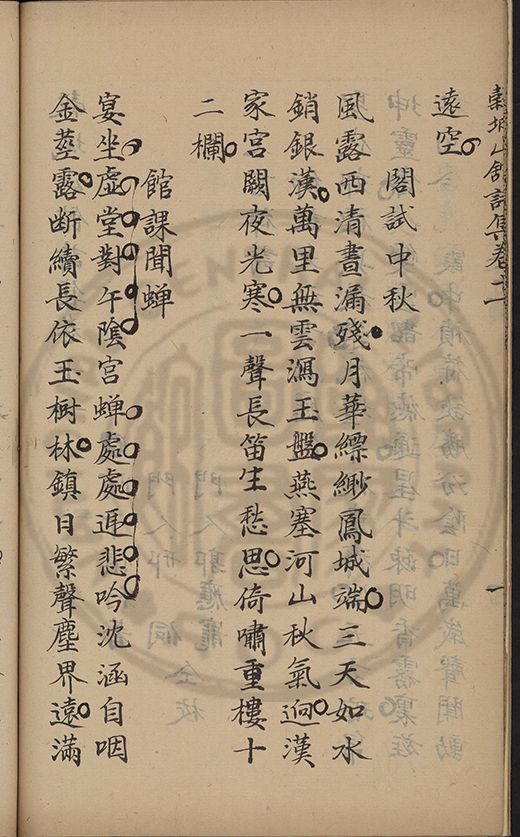 遠空
閣試中秋
風露西清晝漏殘月華縹緲鳳城端三天如水
銷銀漢萬里無雲瀉玉盤燕塞河山秋氣逈漢
家宮闕夜光寒一聲長笛生愁思倚嘯重樓十
二欄
館課聞蟬
宴坐虛堂對午陰宮蟬處處逓悲吟沈涵自咽
金莖露断續長依玉樹林鎮日繁聲塵界遠滿